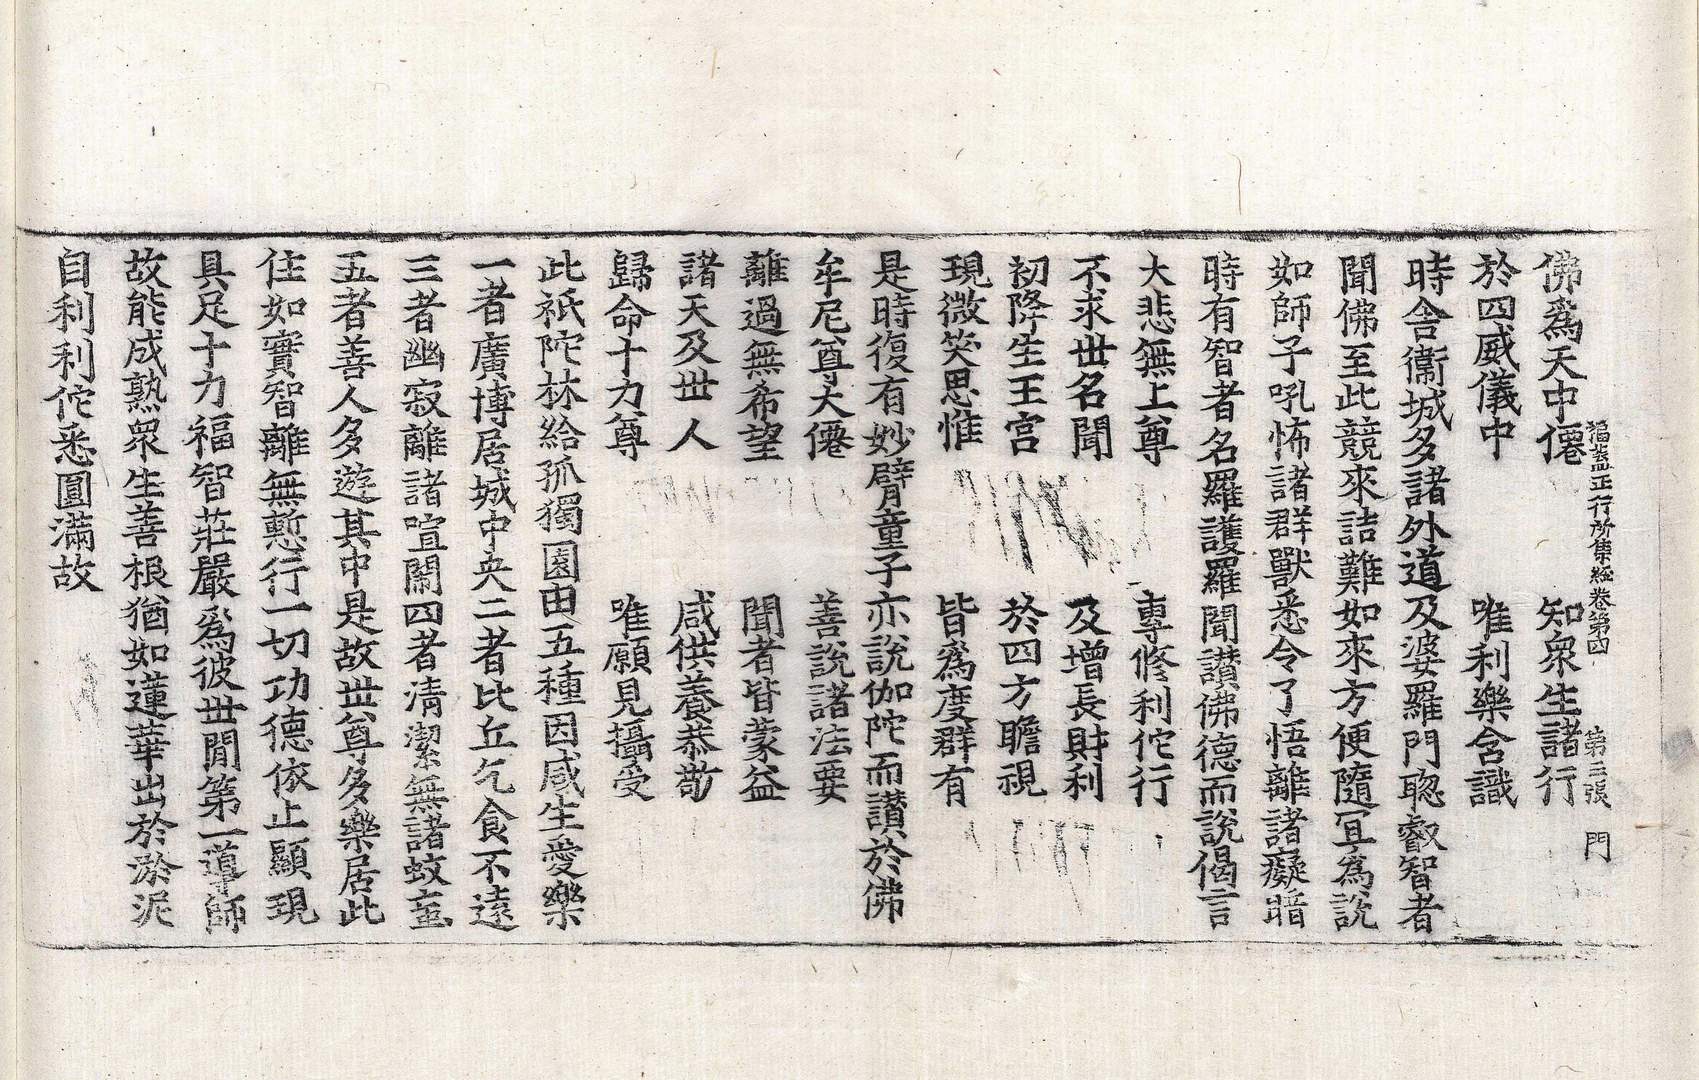 福蓋正行所集經卷第四 第三張 門
佛爲天中僊 知衆生諸行
於四威儀中 唯利樂含識
時舍衞城多諸外道及婆羅門聡叡智者
聞佛至此競來詰難如來方便隨冝爲說
如師子吼怖諸群獸悉令了悟離諸癡暗
時有智者名羅護羅聞讃佛德而說偈言
大悲無上尊 專修利佗行
不求世名聞 及增長財利
初降生王宫 於四方瞻視
現微笑思惟 皆爲度群有
是時復有妙臂童子亦說伽陀而讃於佛
牟尼尊大僊 善說諸法要
離過無希望 聞者皆蒙益
諸天及世人 咸供養恭敬
歸命十力尊 唯願見攝受
此祇陀林給孤獨園由五種因咸生愛樂
一者廣博居城中央二者比丘乞食不遠
三者幽寂離諸喧閙四者清潔無諸蚊䖟
五者善人多遊其中是故世尊多樂居此
住如實智離無慙行一切功德依止顯現
具足十力福智莊嚴爲彼世閒第一導師
故能成熟衆生善根猶如蓮華出於淤泥
自利利佗悉圓滿故